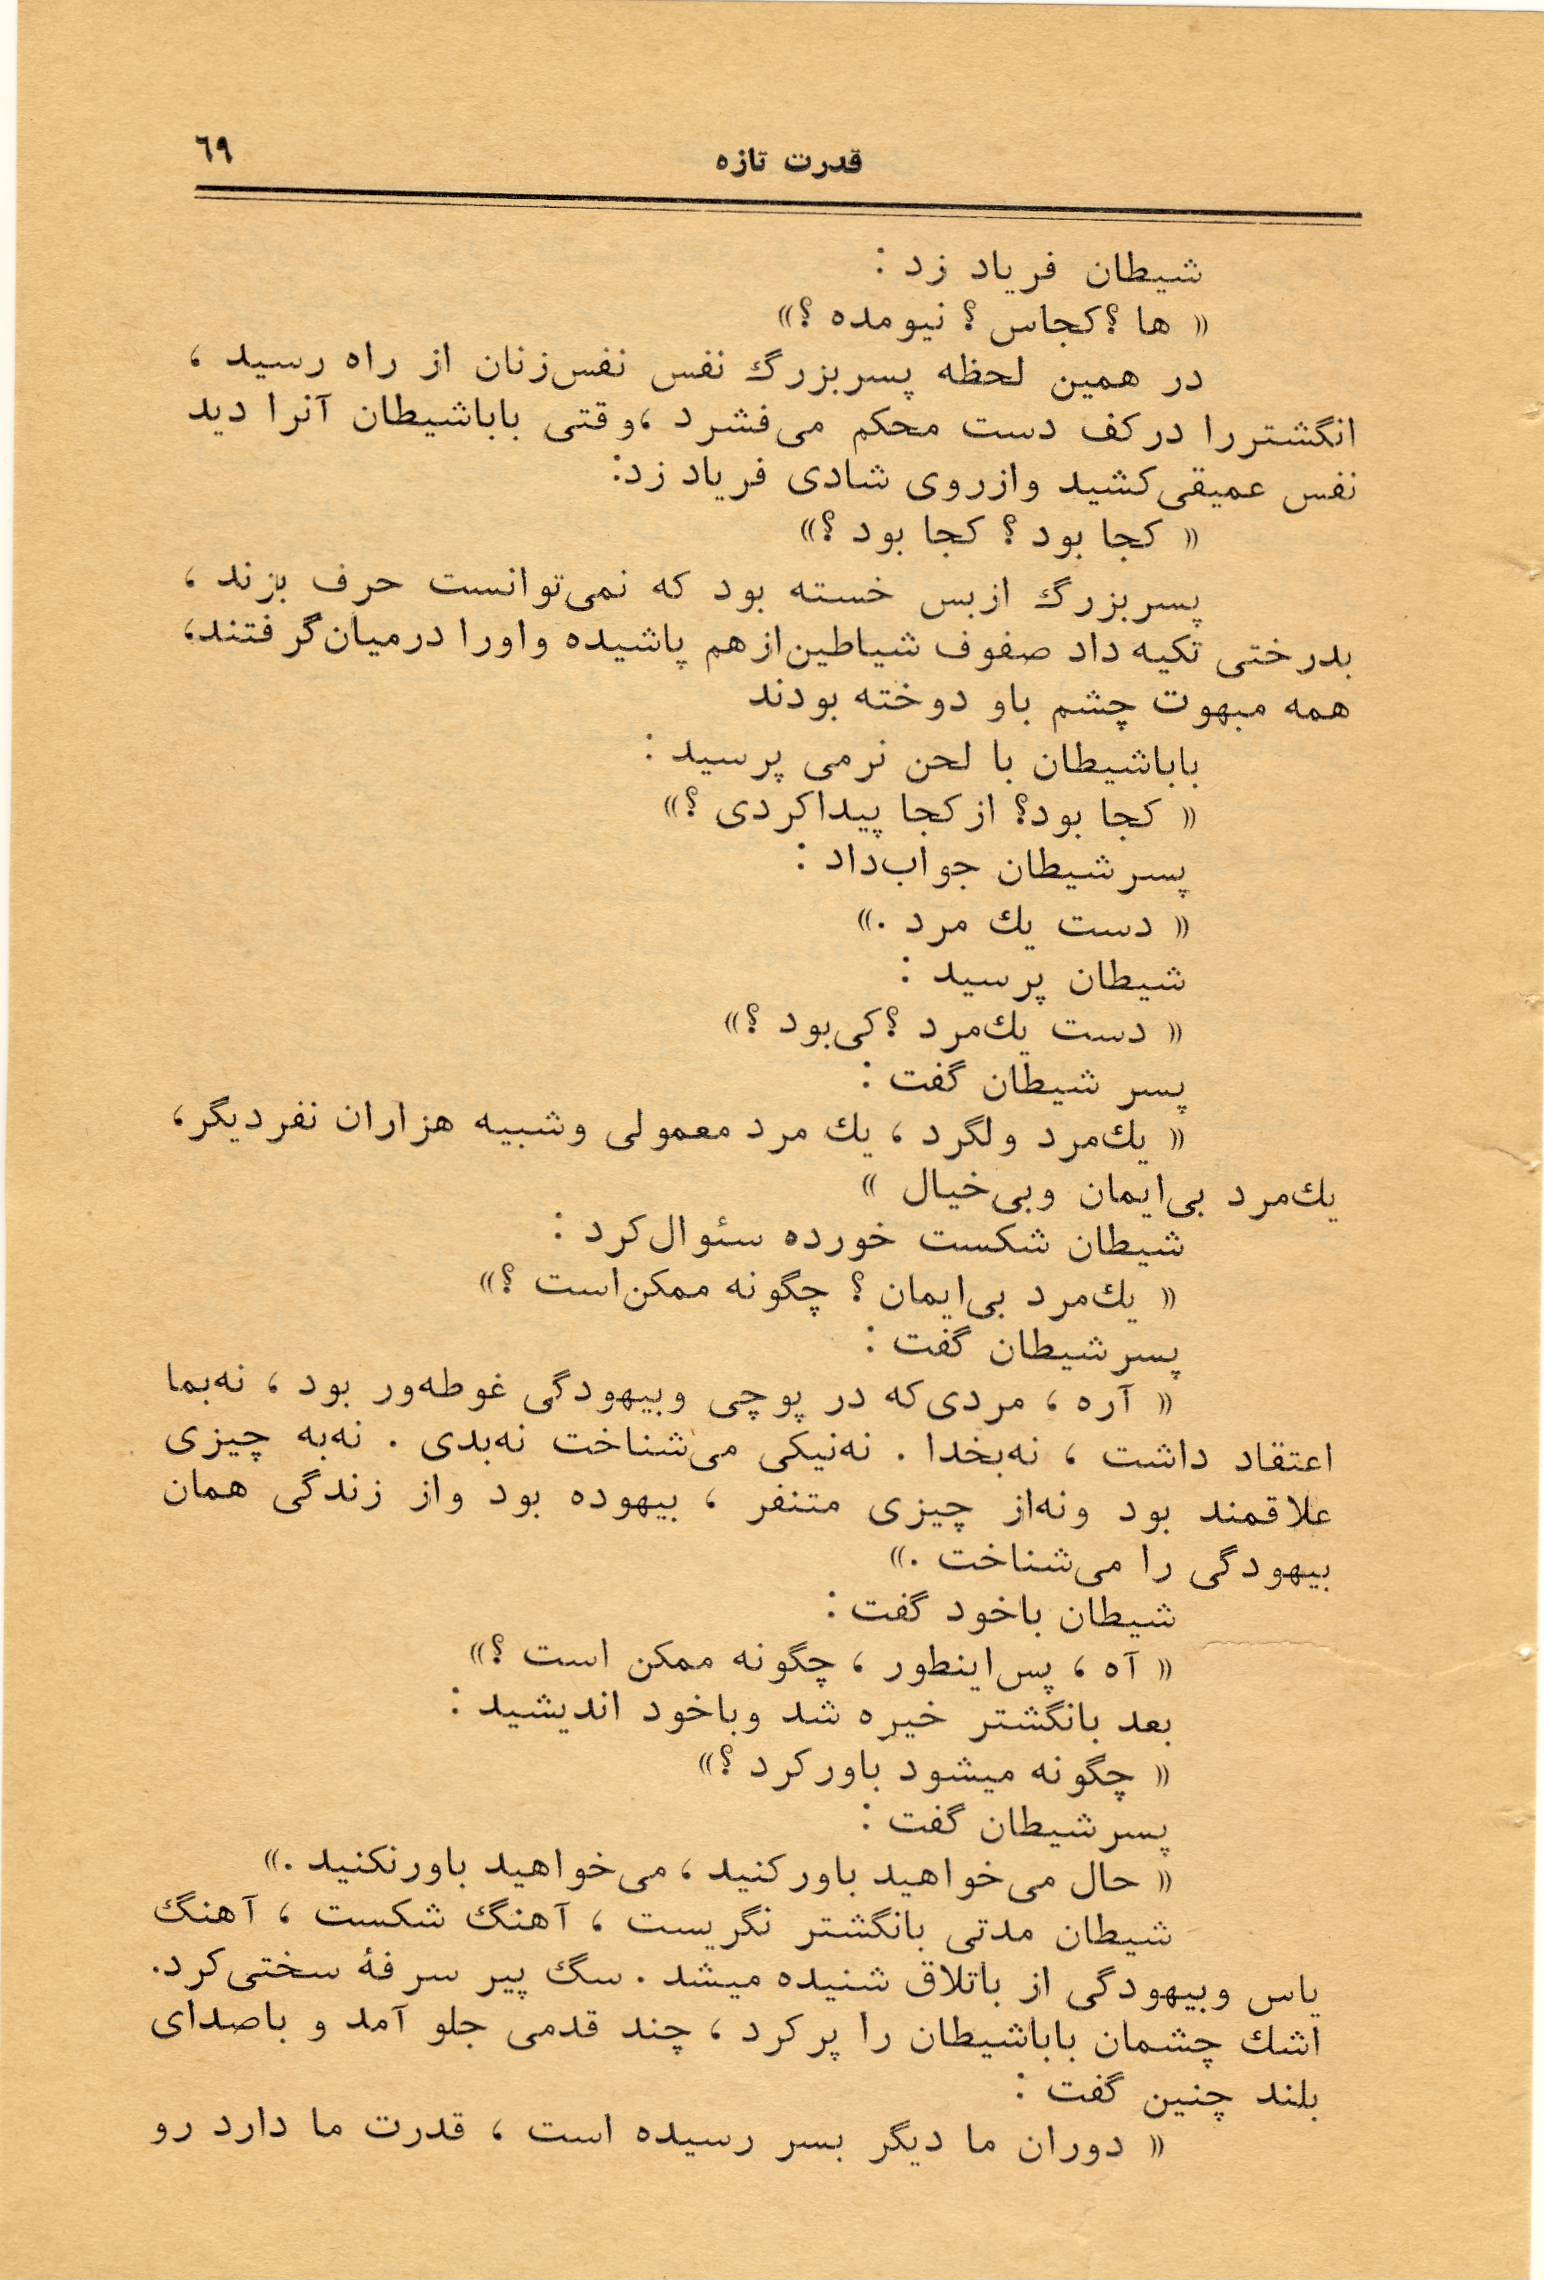 قدرت تازه ٦٩
شیطان فریاد زد :
« ها ؟ کجاس ؟ نیومده ؟»
در همین لحظه پسربزرگ نفس نفس‌زنان از راه رسید ،
انگشتررا درکف دست محکم می‌فشرد ،وقتی باباشیطان آنرا دید
نفس عمیقی‌کشید وازروی شادی فریاد زد:
« کجا بود ؟ کجا بود ؟»
پسربزرگ ازبس خسته بود که نمی‌توانست حرف بزند ،
بدرختی تکیه داد صفوف شیاطین‌ازهم پاشیده واورا درمیان‌گرفتند،
همه مبهوت چشم باو دوخته بودند
باباشیطان با لحن نرمی پرسید :
« کجا بود؟ ازکجا پیداکردی ؟»
پسرشیطان جواب‌داد :
« دست یك مرد .»
شیطان پرسید :
« دست یك‌مرد ؟کی‌بود ؟»
پسر شیطان گفت :
« یك‌مرد ولگرد ، یك مرد معمولی وشبیه هزاران نفردیگر،
یك‌مرد بی‌ایمان وبی‌خیال »
شیطان شکست خورده سئوال‌کرد :
« یك‌مرد بی‌ایمان ؟ چگونه ممکن‌است ؟»
پسرشیطان گفت :
« آره ، مردی‌که در پوچی وبیهودگی غوطه‌ور بود ، نه‌بما
اعتقاد داشت ، نه‌بخدا . نه‌نیکی می‌شناخت نه‌بدی . نه‌به چیزی
علاقمند بود ونه‌از چیزی متنفر ، بیهوده بود واز زندگی همان
بیهودگی را می‌شناخت .»
شیطان باخود گفت :
« آه ، پس‌اینطور ، چگونه ممکن است ؟»
بعد بانگشتر خیره شد وباخود اندیشید :
« چگونه میشود باورکرد ؟»
پسرشیطان گفت :
« حال می‌خواهید باورکنید ، می‌خواهید باورنکنید .»
شیطان مدتی بانگشتر نگریست ، آهنگ شکست ، آهنگ
یاس وبیهودگی از باتلاق شنیده میشد . سگ پیر سرفهٔ سختی‌کرد.
اشك چشمان باباشیطان را پرکرد ، چند قدمی جلو آمد و باصدای
بلند چنین گفت :
« دوران ما دیگر بسر رسیده است ، قدرت ما دارد رو